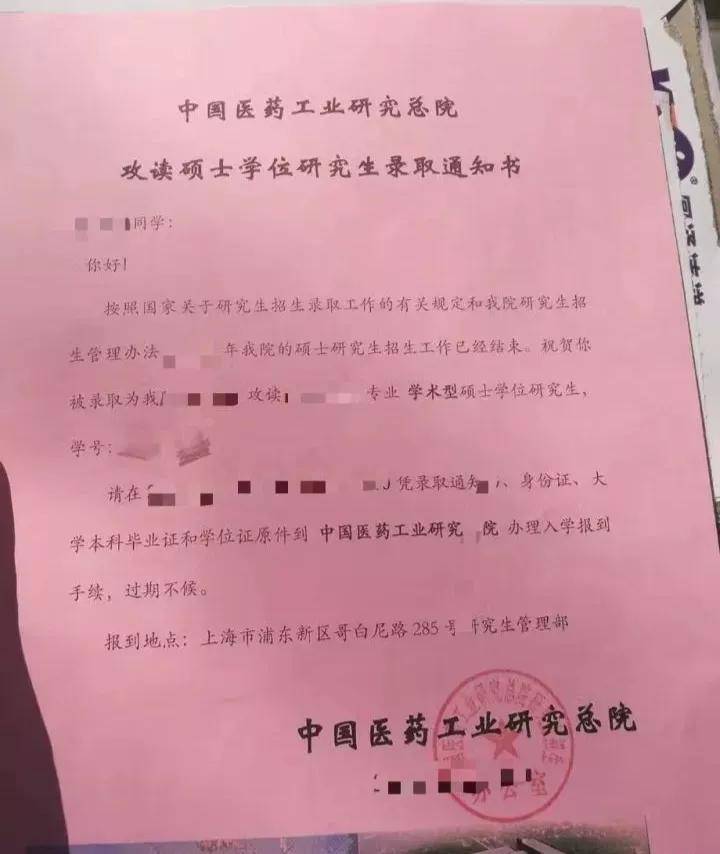 中国医药工业研究总院
攻读硕士学位研究生录取通知书
同学：
你好！
按照国家关于研究生招生录取工作的有关规定和我院研究生招
生管理办法 年我院的硕士研究生招生工作已经结束。祝贺你
被录取为我 攻读 专业 学术型硕士学位研究生，
学号：
请在 凭录取通知 、身份证、大
学本科毕业证和学位证原件到 中国医药工业研究 院 办理入学报到
手续，过期不候。
报到地点：上海市浦东新区哥白尼路 285 号 研究生管理部
中国医药工业研究总院
工业研究总院
办公室